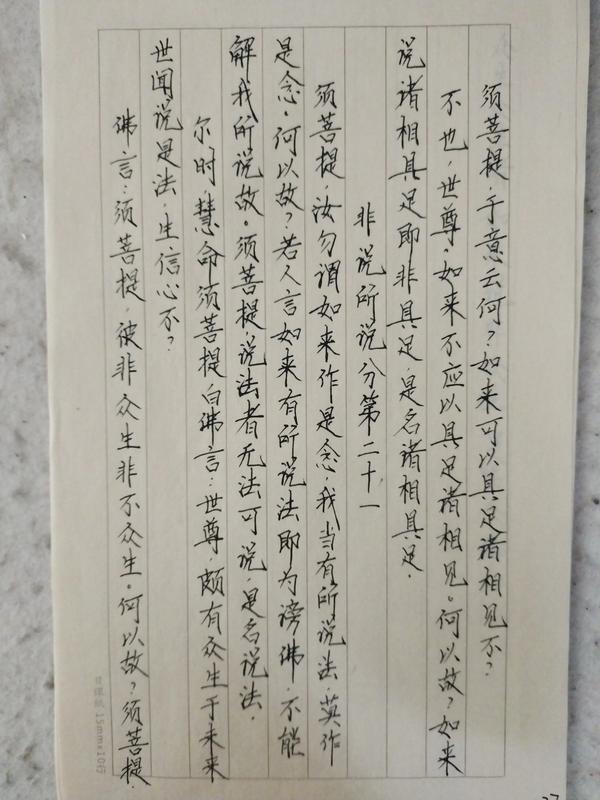 须菩提，于意云何？如来可以具足诸相见不？
不也，世尊。如来不应以具足诸相见。何以故？如来
说诸相具足即非具足，是名诸相具足．
非说所说分第二十一
须菩提，汝勿谓如来作是念，我当有所说法，莫作
是念。何以故？若人言如来有所说法即为谤佛，不能
解我所说故。须菩提，说法者无法可说，是名说法．
尔时，慧命须菩提白佛言：世尊，颇有众生于未来
世闻说是法，生信心不？
佛言：须菩提，彼非众生非不众生。何以故？须菩提．
日課紙 15mm×10行
27